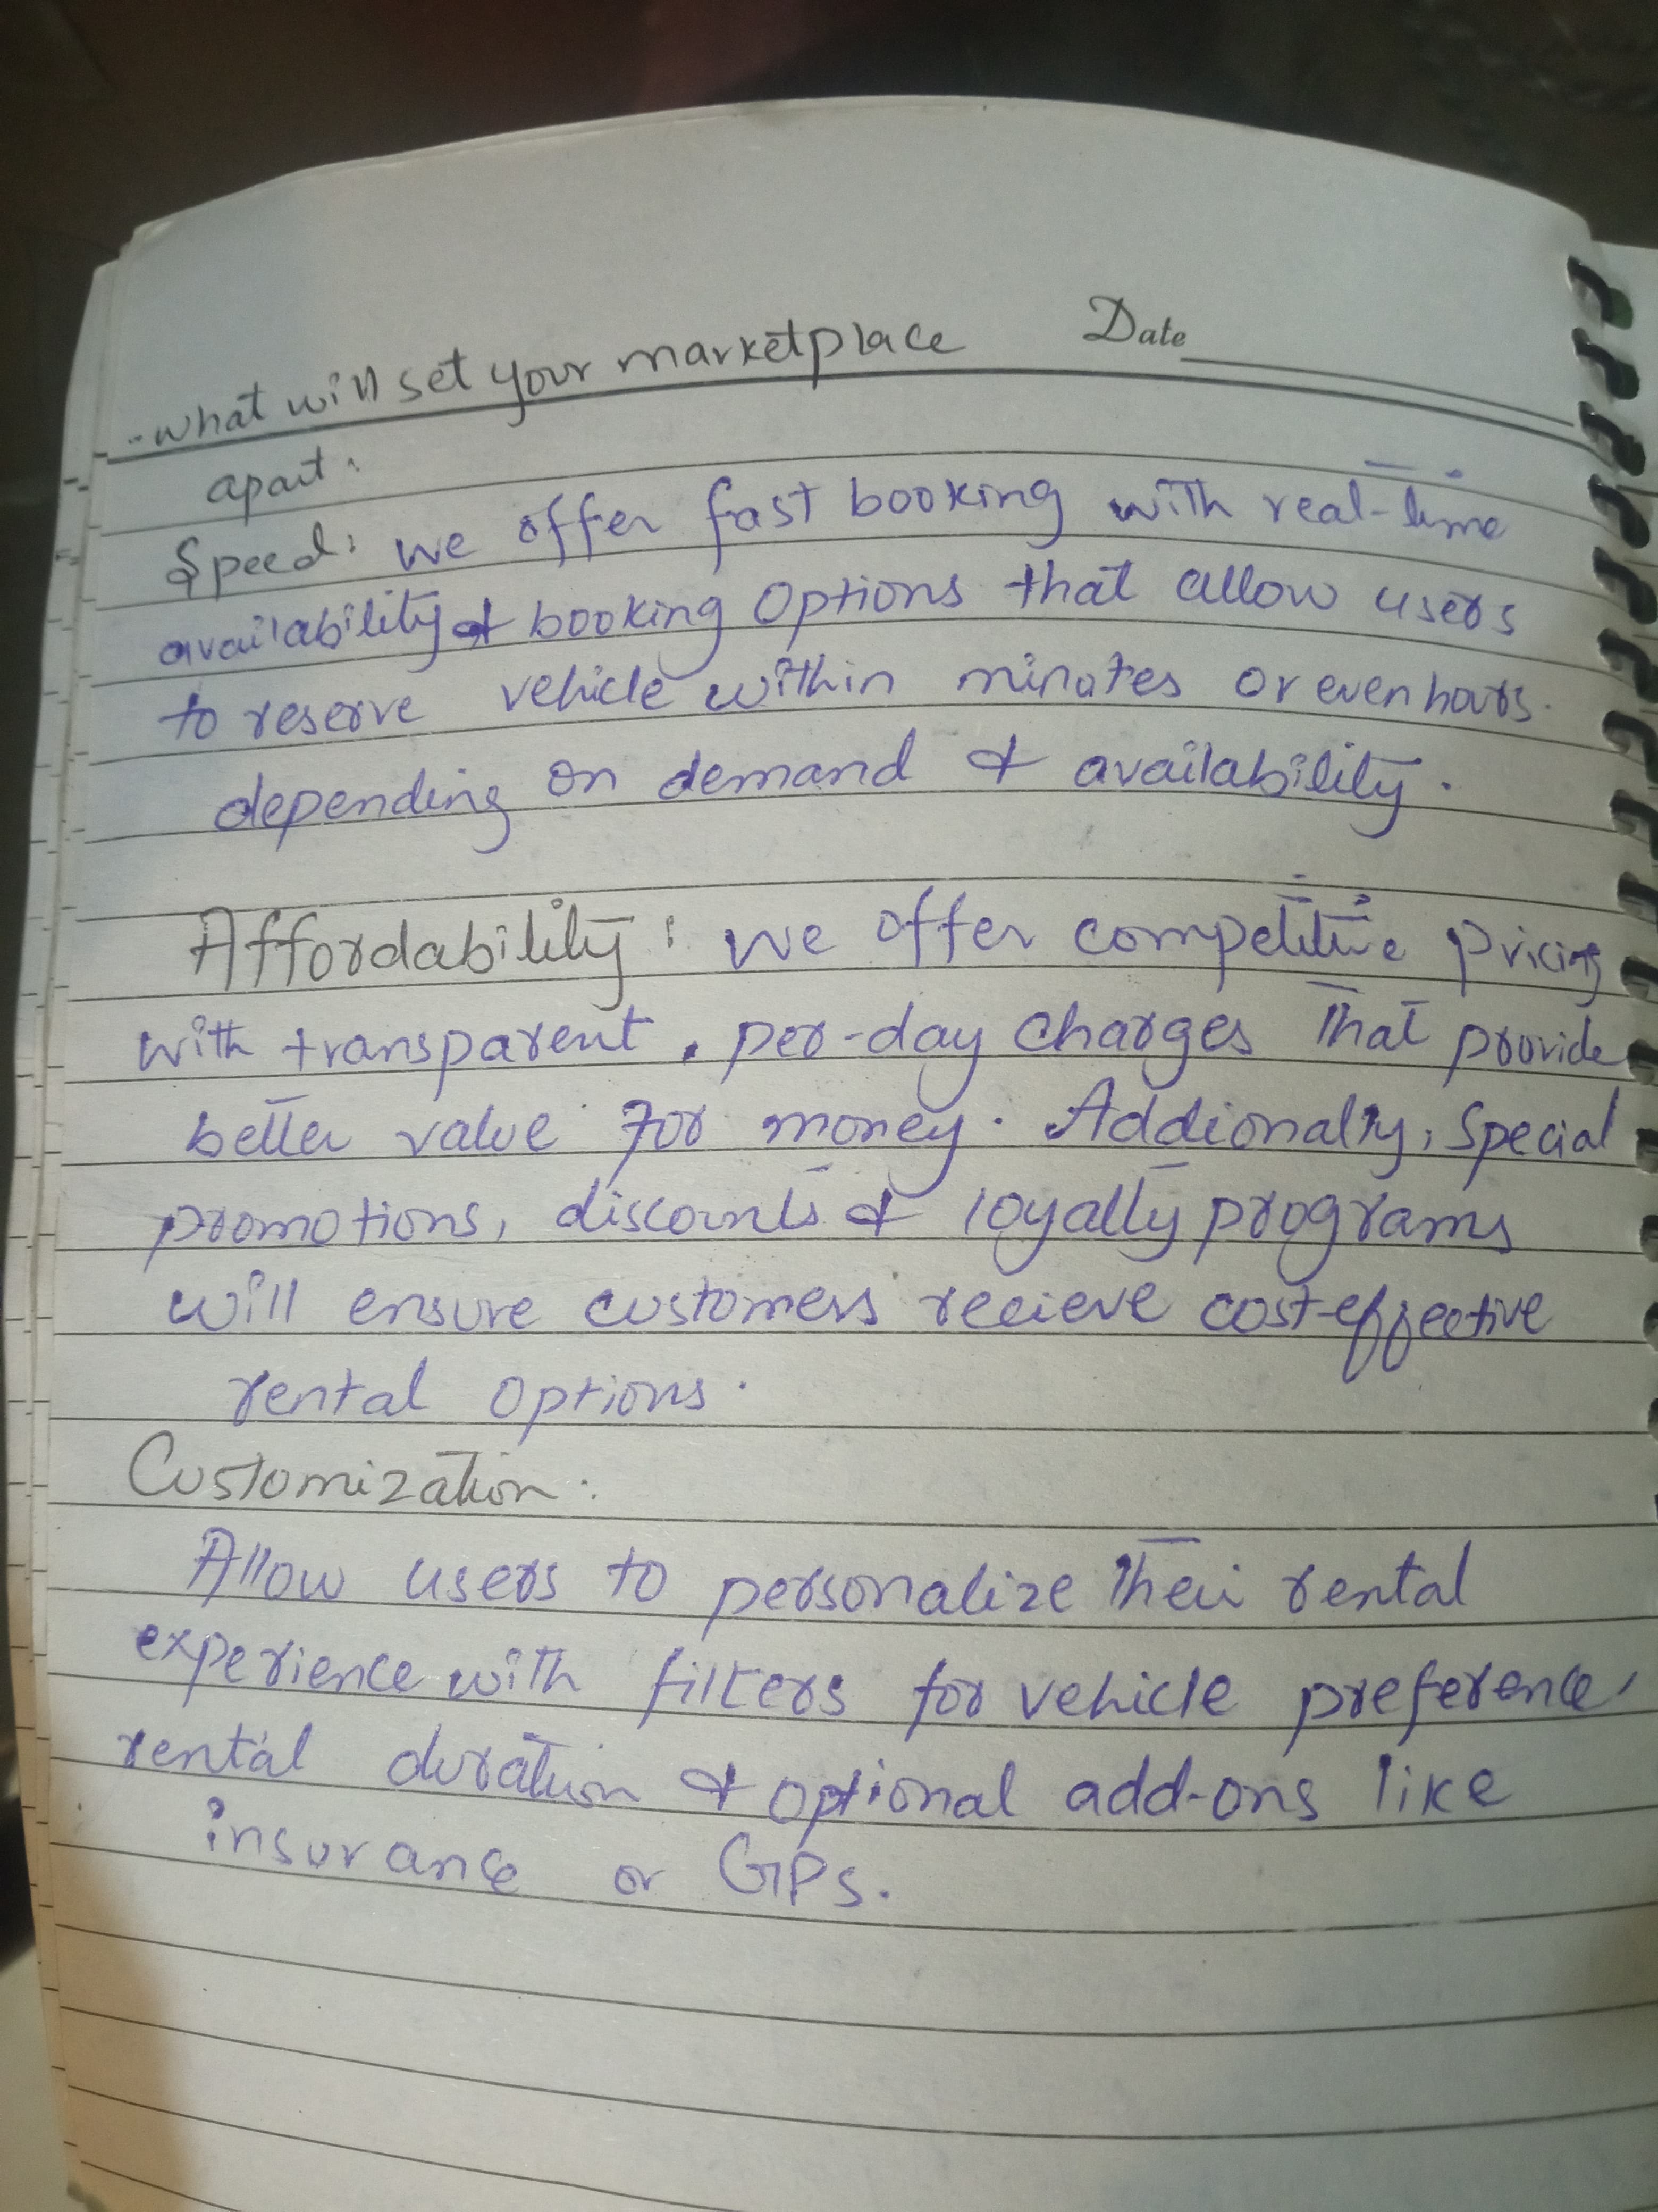 what will set your marketplace Date
apart:
Speed: we offer fast booking with real-time
availability & booking options that allow users
to reserve vehicle within minutes or even hours.
depending on demand & availability.
Affordability: we offer competitive pricing
with transparent, per-day charges that provide
better value for money. Addionalty, special
promotions, discounts & loyalty programs
will ensure customers recieve cost-effective
rental options.
Customization:
Allow users to personalize their rental
experience with filters for vehicle preference,
rental duration & optional add-ons like
insurance or GPs.